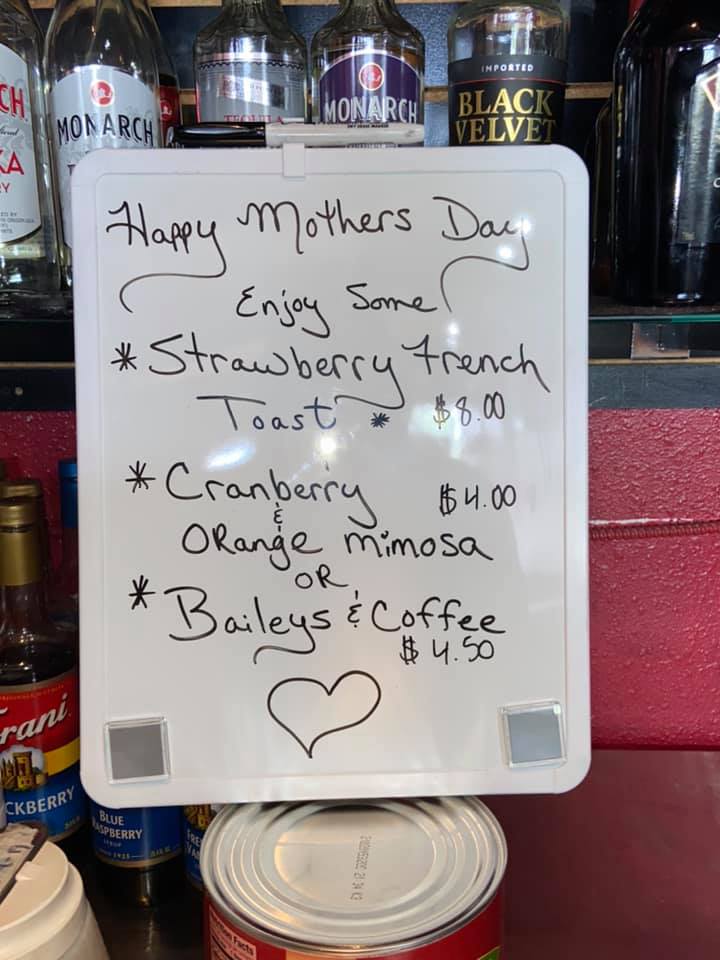 MONARCH
MONARCH
IMPORTED
BLACK
VELVET
Happy Mothers Day
Enjoy Some
* Strawberry French
Toast * $8.00
* Cranberry $4.00
&
Orange mimosa
OR
* Baileys & Coffee
$4.50
rani
CKBERRY
BLUE
ASPBERRY
SYRUP
Nutrition Facts